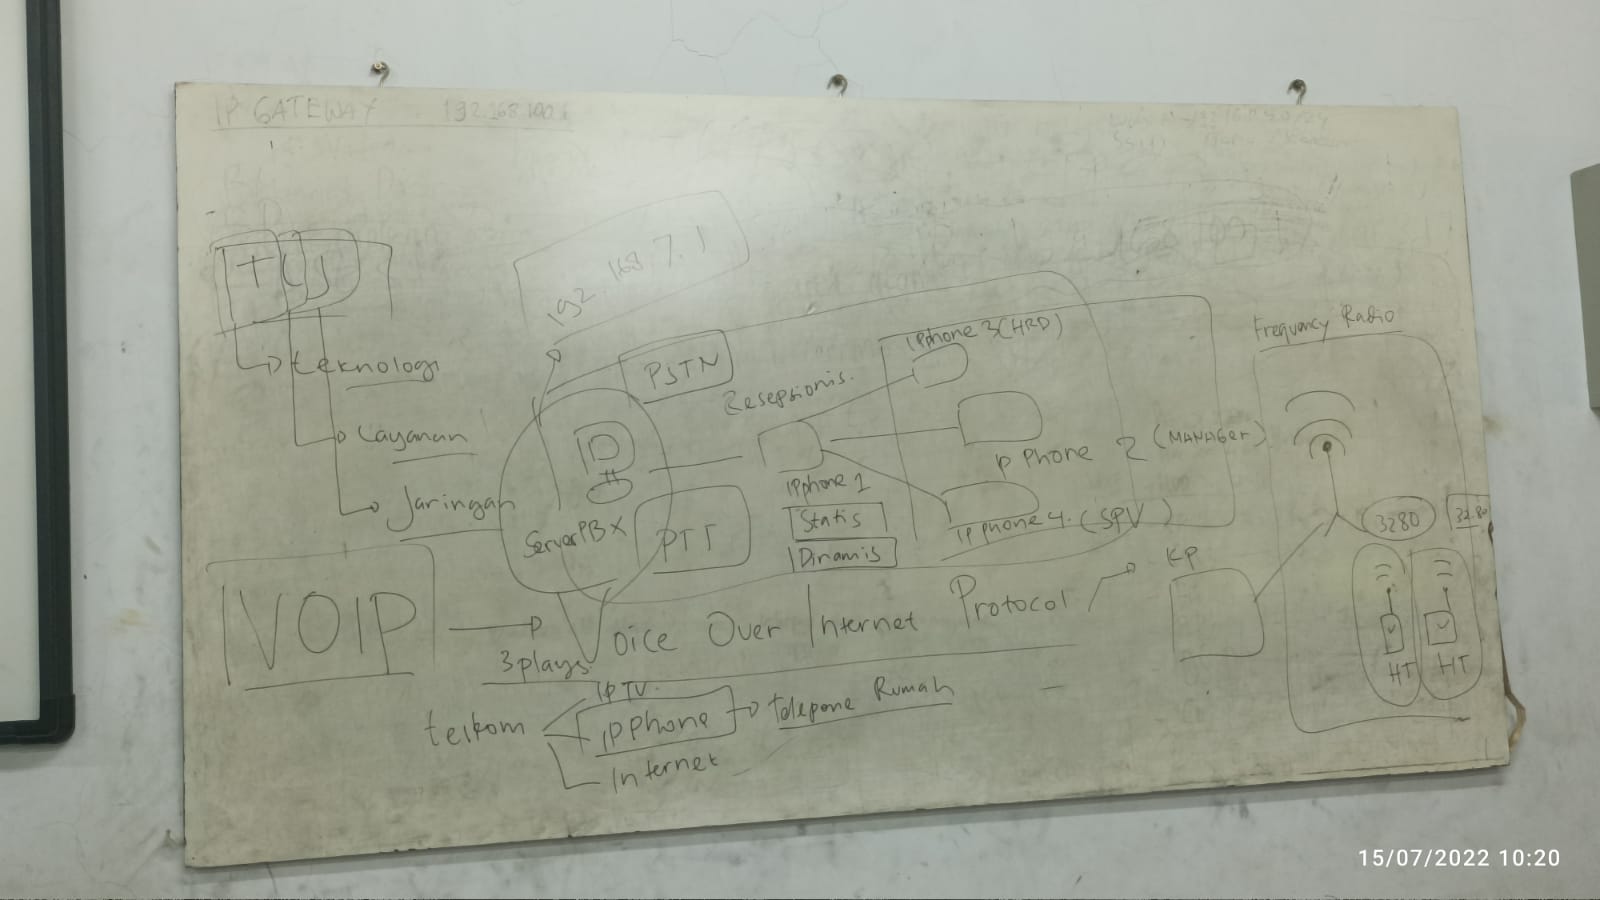 IP GATEWAY 192.168.100.1
TLJ
teknologi
Layanan
Jaringan
192.168.7.1
PSTN
Resepsionis.
Server PBX
PTT
IPphone 1
Statis
Dinamis
IPphone 3 (HRD)
IP Phone 2 (MANAGer)
IP phone 4. (SPV)
Frequancy Radio
3280
32.80
KP
HT
HT
VOIP
Voice Over Internet Protocol
3plays.
telkom
IPTV.
IPPhone
telepone Rumah
Internet
15/07/2022 10:20